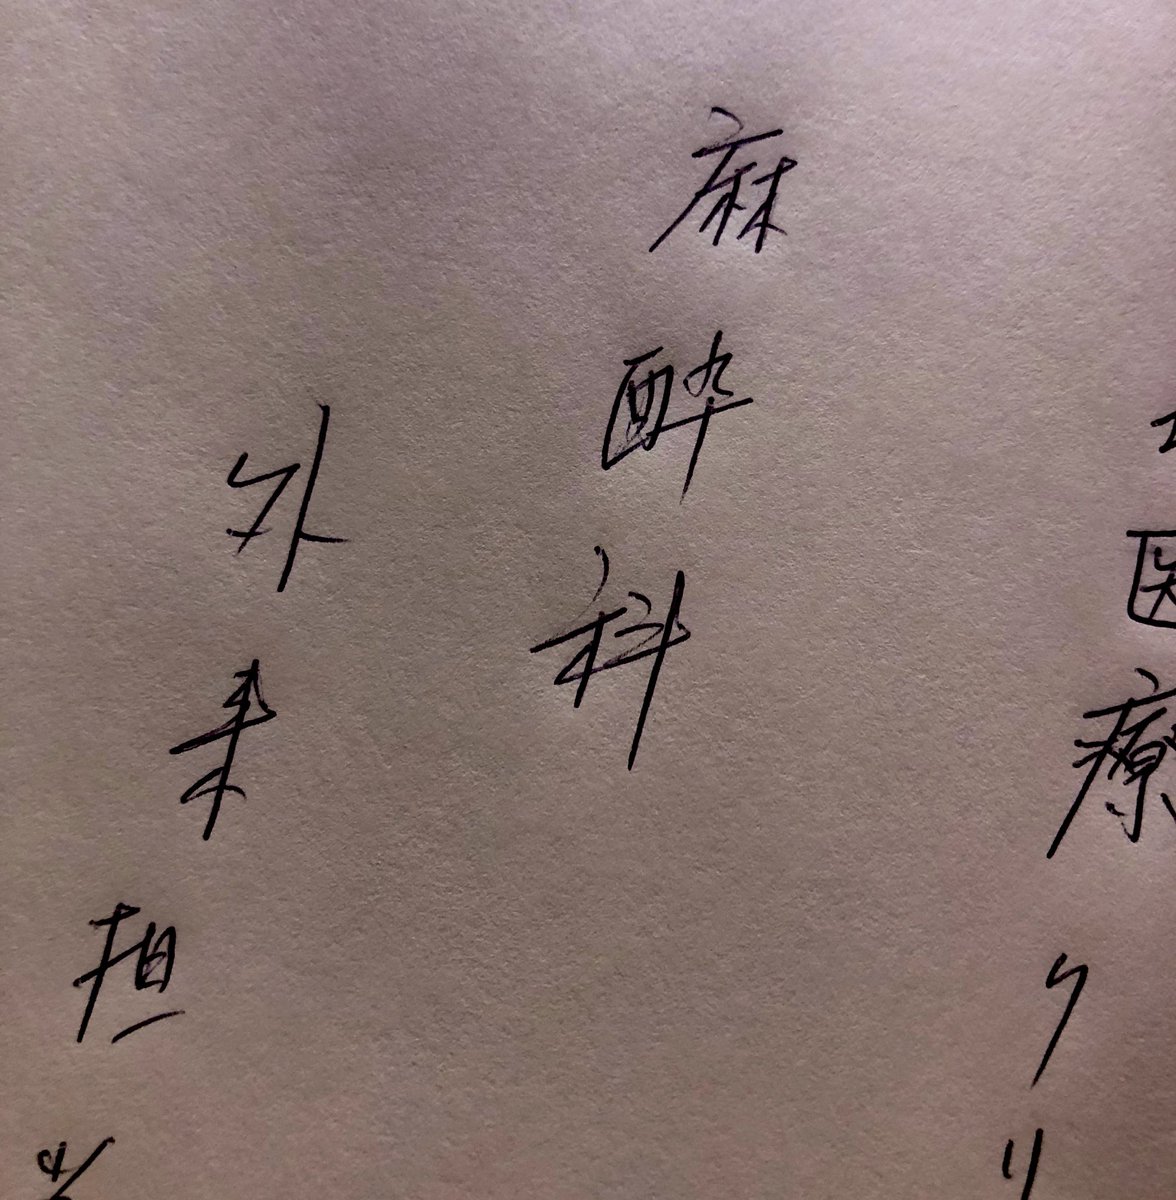 医療クリ
麻酔科
外来担